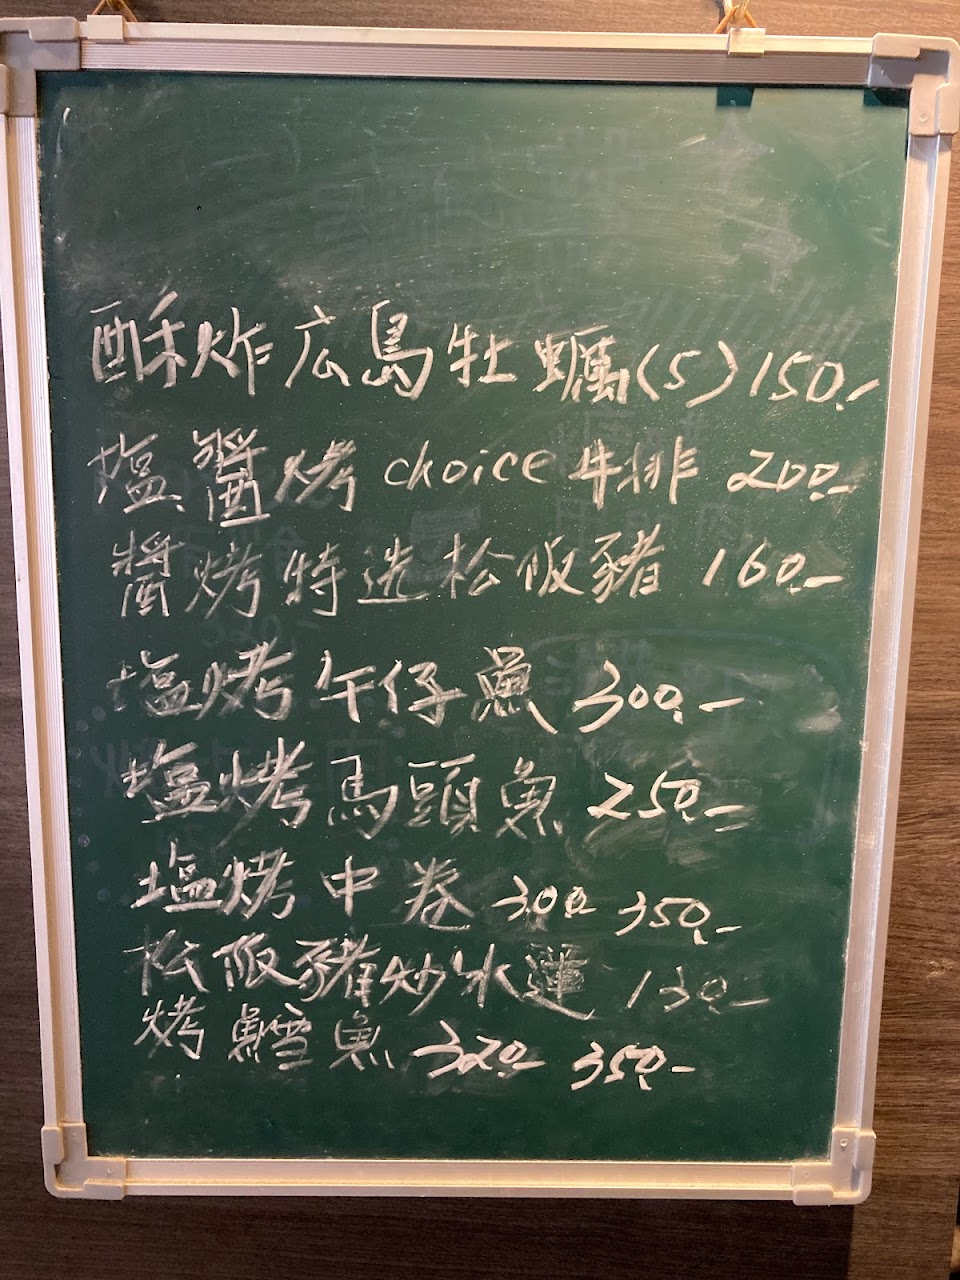 酥炸広島牡蠣(5)150.-
塩醬烤choice牛排 200.-
醬烤特选松阪豬 160.-
塩烤午仔魚 300.-
塩烤馬頭魚 250.-
塩烤中卷 300.- 350.-
松阪豬炒水蓮 130.-
烤鱈魚 320.- 350.-